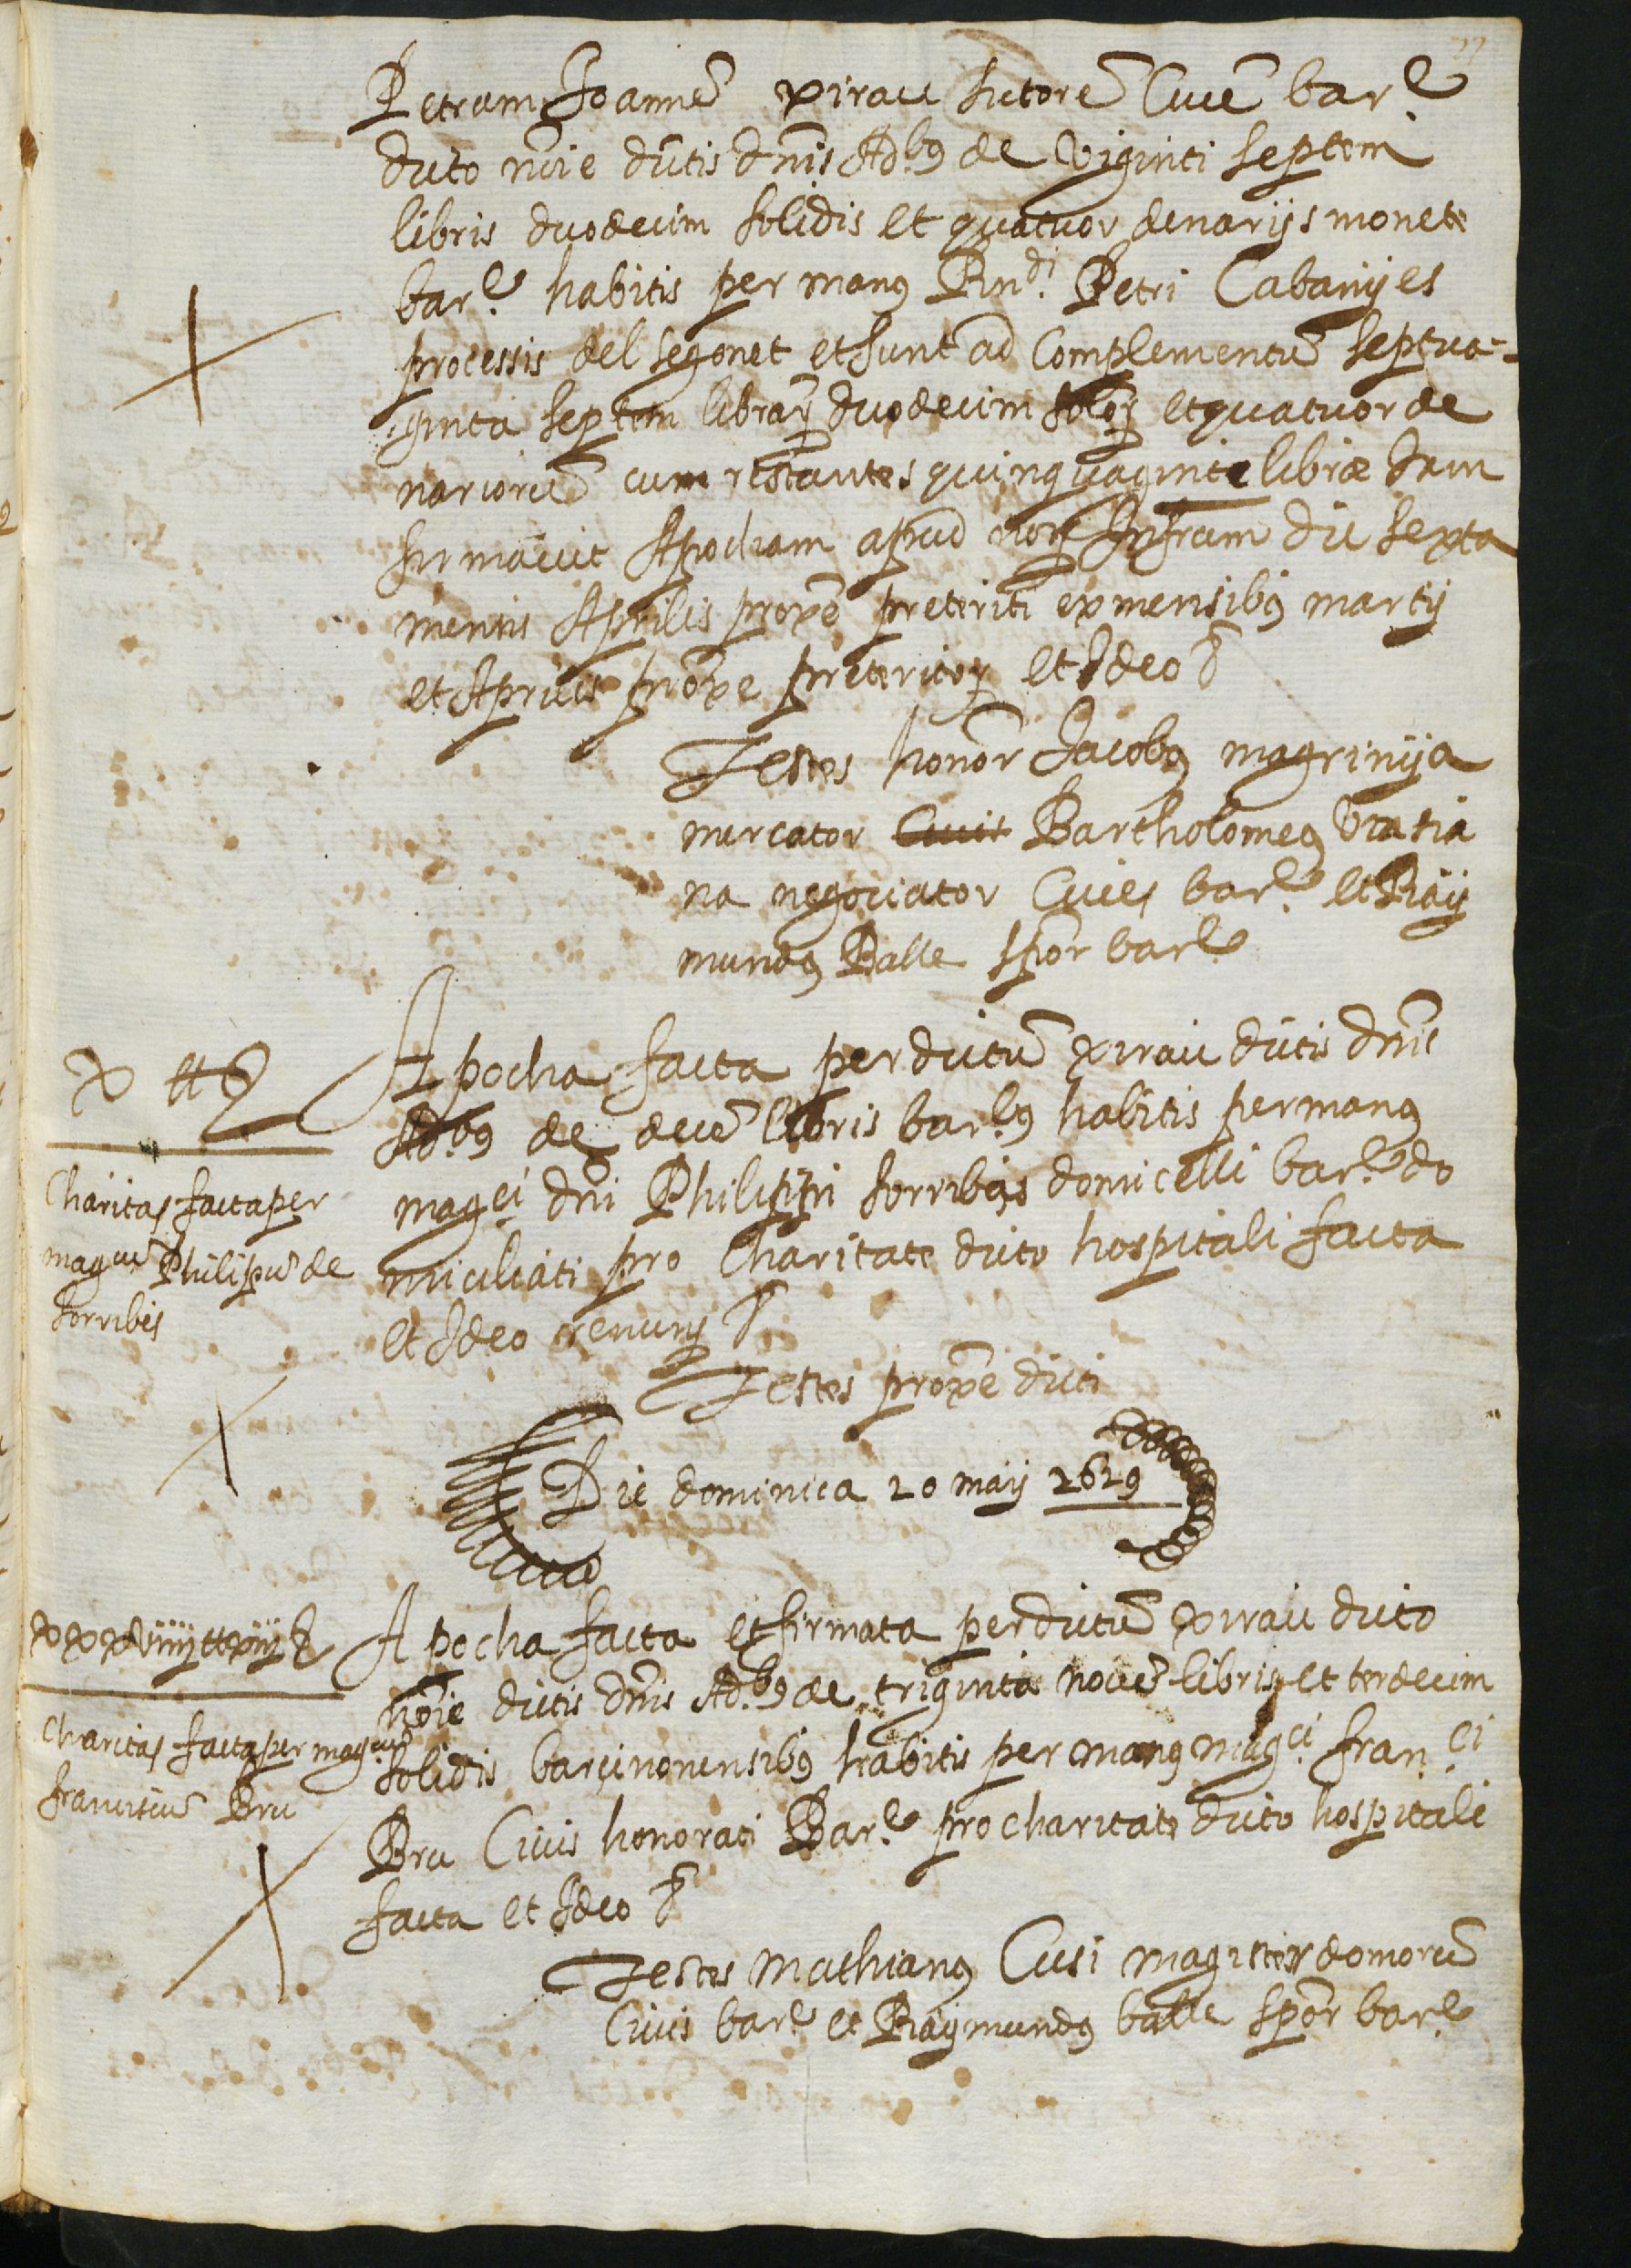 77
Petrum Joannẽ xirau sutorẽ Civẽ barᵉ
dicto nõie dictis dñis Adᵇ9 de viginti septem
libris duodecim solidis et quatuor denarijs monete
barᵉ habitis per man9 Rñᵈⁱ Petri Cabanyes
processis del segonet et sunt ad Complementũ septua-
ginta septem libraȝ duodecim soloȝ et quatuor de
nariorũ cum restantes quinquaginta libræ Jam
firmavit Apocham apud noȝ Infrũm die sexta
mensis Aprilis proxẽ preteriti ex mensib9 martij
et Aprilis proxe preteritoȝ et Ideo &
Testes honor Jacob9 magrinya
mercator Civis Bartholome9
na negociator Cives barᵉ et Ray
mund9 Batlle sp̃or barᵉ
x ₶ ß
Charitas facta per
magᶜᵘ Philipũ de
sorribes
Apocha facta per dictũ xirau dictis dñis
Adᵇ9 de decẽ libris barᵉ9 habitis per man9
magᶜⁱ dñi Philippi sorribes domicelli barᵉ do
miciliati pro Charitate dicto hospitali facta
et Ideo renunȝ &
Testes proxẽ dicti
Die dominica 20 maij 1629
xxxviiij ₶ xiij ß
Charitas facta per magᶜᵘ
franciscũ Bru
Apocha facta et firmata per dictũ xirau dicto
nõie dictis dñis Adᵇ9 de triginta novẽ libris et terdecim
solidis barcinonensib9 habitis per man9 magᶜⁱ franᶜⁱ
Bru Civis honorati Barᵉ pro charitate dicto hospitali
facta et Ideo &
Testes Mathian9 Cusi magister domorũ
Civis barᵉ et Raymund9 batlle sp̃or barᵉ